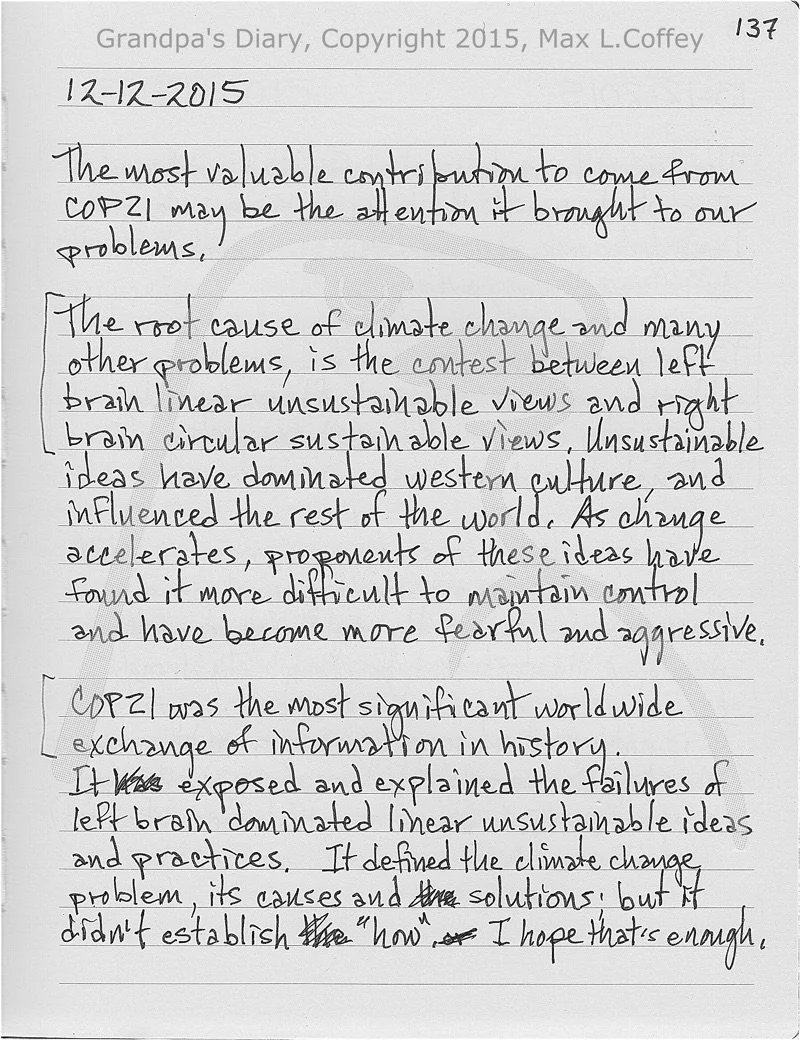 137
Grandpa's Diary, Copyright 2015, Max L.Coffey
12-12-2015
The most valuable contribution to come from
COP21 may be the attention it brought to our
problems.
The root cause of climate change and many
other problems, is the contest between left
brain linear unsustainable views and right
brain circular sustainable views. Unsustainable
ideas have dominated western culture, and
influenced the rest of the world. As change
accelerates, proponents of these ideas have
found it more difficult to maintain control
and have become more fearful and aggressive.
COP21 was the most significant worldwide
exchange of information in history.
It exposed and explained the failures of
left brain dominated linear unsustainable ideas
and practices. It defined the climate change
problem, its causes and solutions; but it
didn't establish "how". I hope that's enough.